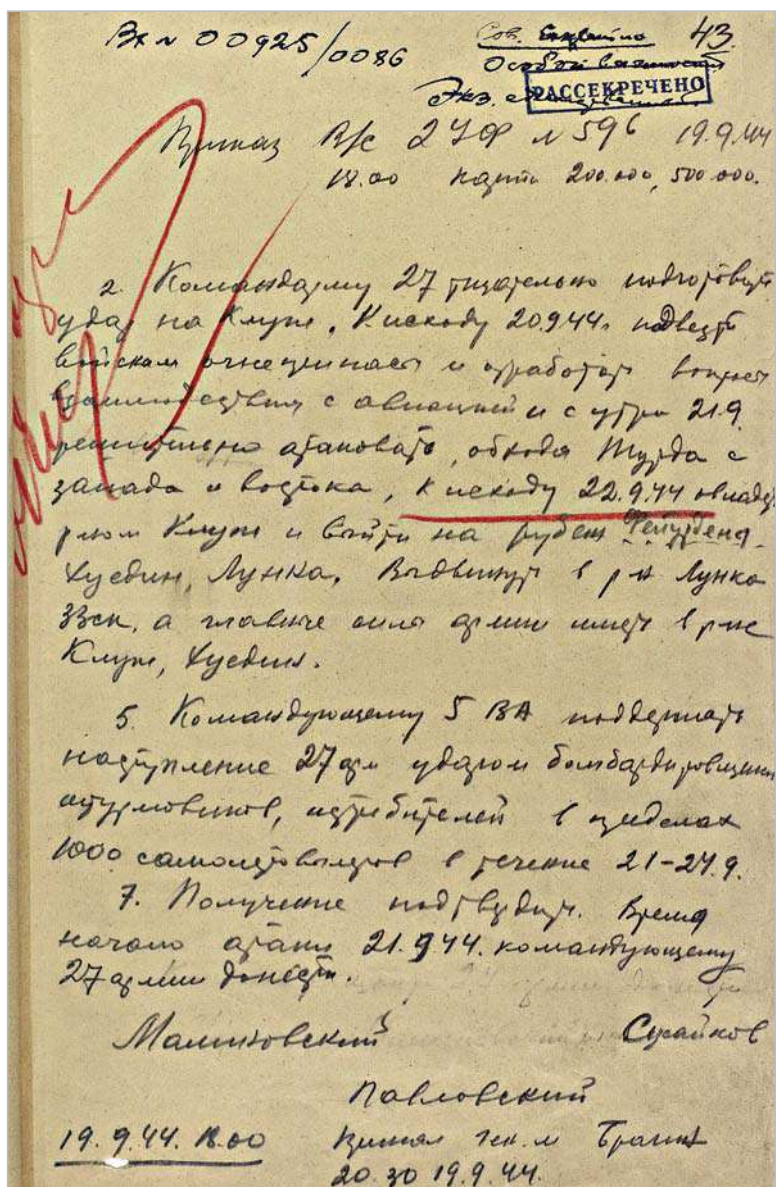 Вх № 00925/0086
Сов. Секретно 43
Особой важности
РАССЕКРЕЧЕНО
Экз.
Приказ В/с 2УФ № 596 19.9.44
18.00 карта 200.000, 500.000.
2. Командарму 27 тщательно подготовить
удар на Клуж. К исходу 20.9.44. подвезти
войскам огнеприпасы и отработать вопросы
взаимодействия с авиацией и с утра 21.9.
решительно атаковать, обходя Турда с
запада и востока, к исходу 22.9.44 овладеть
р-ном Клуж и выйти на рубеж
Хуедин, Лунка. Выдвинуть в р-н Лунка
33ск, а главные силы армии иметь в р-не
Клуж, Хуедин.
5. Командующему 5 ВА поддержать
наступление 27 арм ударом бомбардировщиков
штурмовиков, истребителей в пределах
1000 самолетовылетов в течение 21-24.9.
7. Получение подтвердить. Время
начало атаки 21.9.44. командующему
27 армии донести.
Малиновский Сусайков
Павловский
19.9.44. 18.00 Принял ген. м
20.30 19.9.44.